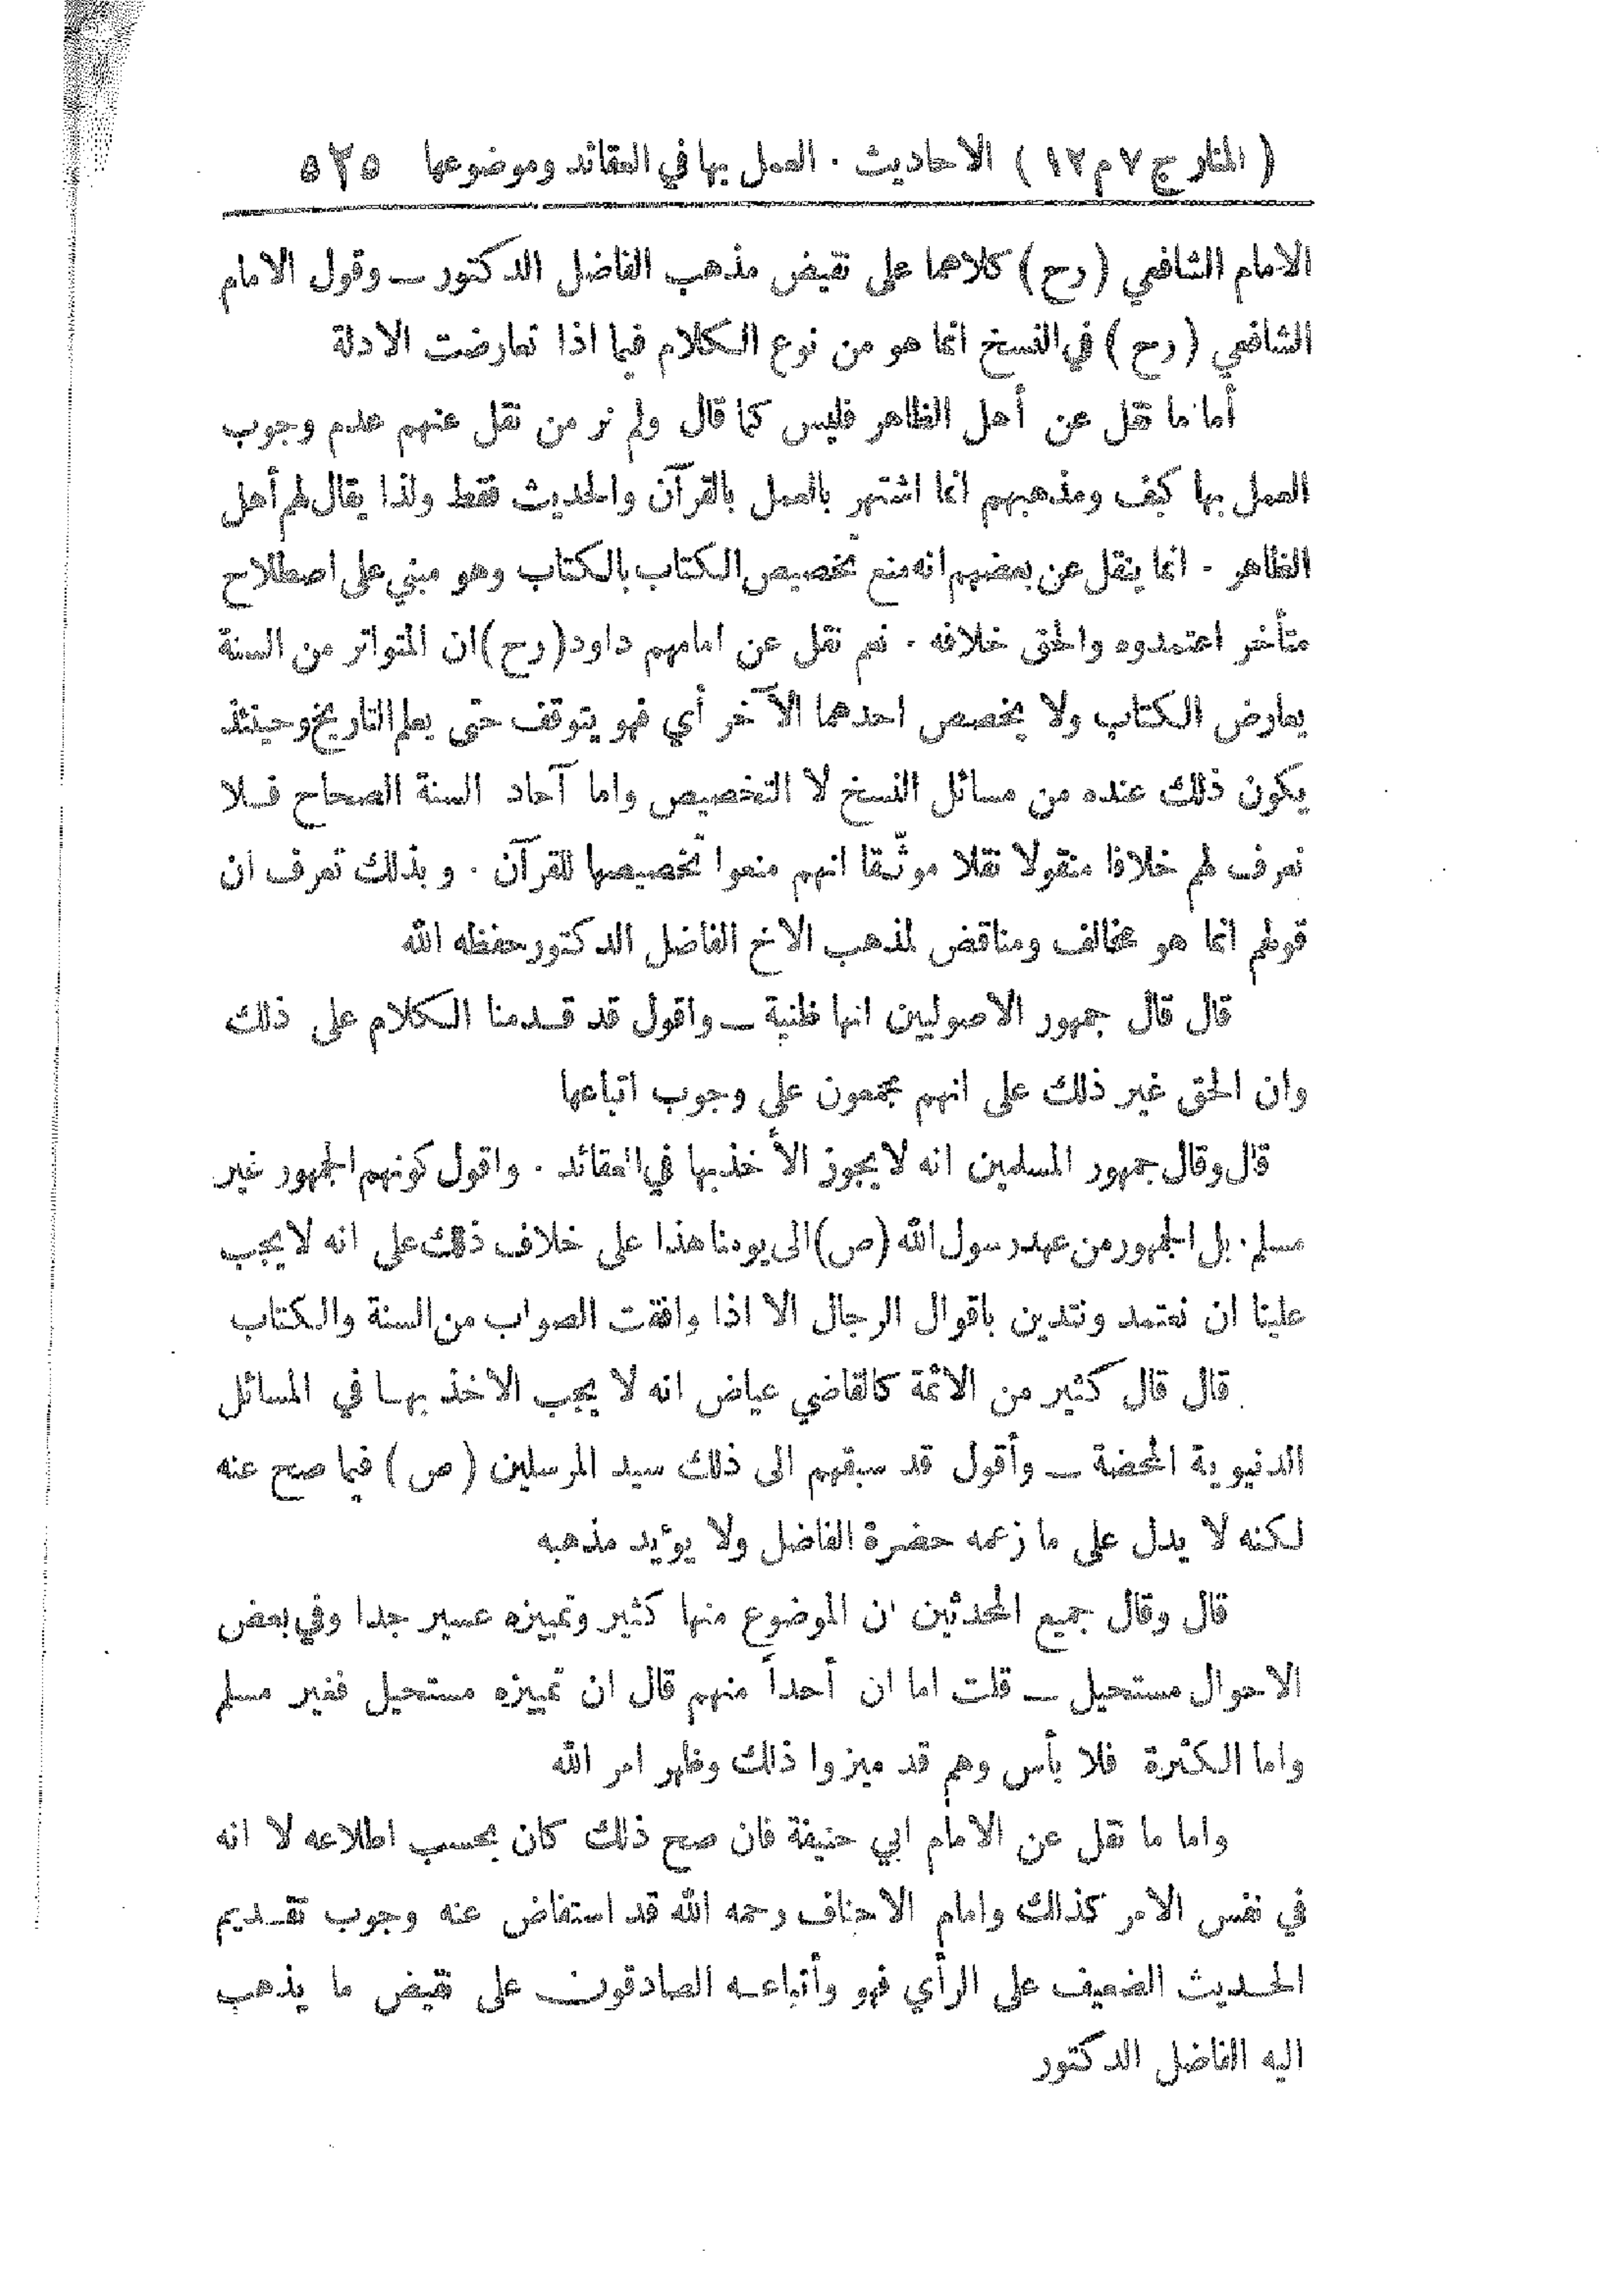 ( المنار ج ٧ م ١٢ ) الاحاديث . العمل بها في العقائد وموضوعها ٥٢٥
الامام الشافعي (رح) كلاهما على نقيض مذهب الفاضل الدكتور ــ وقول الامام
الشافعي (رح) في النسخ انما هو من نوع الكلام فيما اذا تعارضت الادلة
أما ما نقل عن أهل الظاهر فليس كما قال ولم نر من نقل عنهم عدم وجوب
العمل بها كيف ومذهبهم انما اشتهر بالعمل بالقرآن والحديث فقط ولذا يقال لهم أهل
الظاهر . انما ينقل عن بعضهم انه منع تخصيص الكتاب بالكتاب وهو مبني على اصطلاح
متأخر اعتمدوه والحق خلافه . نعم نقل عن امامهم داود (رح) ان المتواتر من السنة
يعارض الكتاب ولا يخصص احدهما الآخر أي فهو يتوقف حتى يعلم التاريخ وحينئذ
يكون ذلك عنده من مسائل النسخ لا التخصيص واما آحاد السنة الصحاح فلا
نعرف لهم خلافا منقولا نقلا موثّقا انهم منعوا تخصيصها للقرآن . وبذلك تعرف ان
قولهم انما هو مخالف ومناقض لمذهب الاخ الفاضل الدكتور حفظه الله
قال قال جمهور الاصوليين انها ظنية ــ واقول قد قدمنا الكلام على ذلك
وان الحق غير ذلك على انهم مجمعون على وجوب اتباعها
قال وقال جمهور المسلمين انه لا يجوز الأخذ بها في العقائد . واقول كونهم الجمهور غير
مسلم . بل الجمهور من عهد رسول الله (ص) الى يومنا هذا على خلاف ذلك على انه لا يجب
علينا ان نعتمد ونتدين باقوال الرجال الا اذا وافقت الصواب من السنة والكتاب
قال قال كثير من الائمة كالقاضي عياض انه لا يجب الاخذ بها في المسائل
الدنيوية المحضة ــ وأقول قد سبقهم الى ذلك سيد المرسلين (ص) فيما صح عنه
لكنه لا يدل على ما زعمه حضرة الفاضل ولا يؤيد مذهبه
قال وقال جميع المحدثين ان الموضوع منها كثير وتمييزه عسير جدا وفي بعض
الاحوال مستحيل ــ قلت اما ان أحداً منهم قال ان تمييزه مستحيل فغير مسلم
واما الكثرة فلا بأس وهم قد ميزوا ذلك وظهر امر الله
واما ما نقل عن الامام ابي حنيفة فان صح ذلك كان بحسب اطلاعه لا انه
في نفس الامر كذلك وامام الاحناف رحمه الله قد استفاض عنه وجوب تقديم
الحديث الضعيف على الرأي فهو وأتباعه الصادقون على نقيض ما يذهب
اليه الفاضل الدكتور